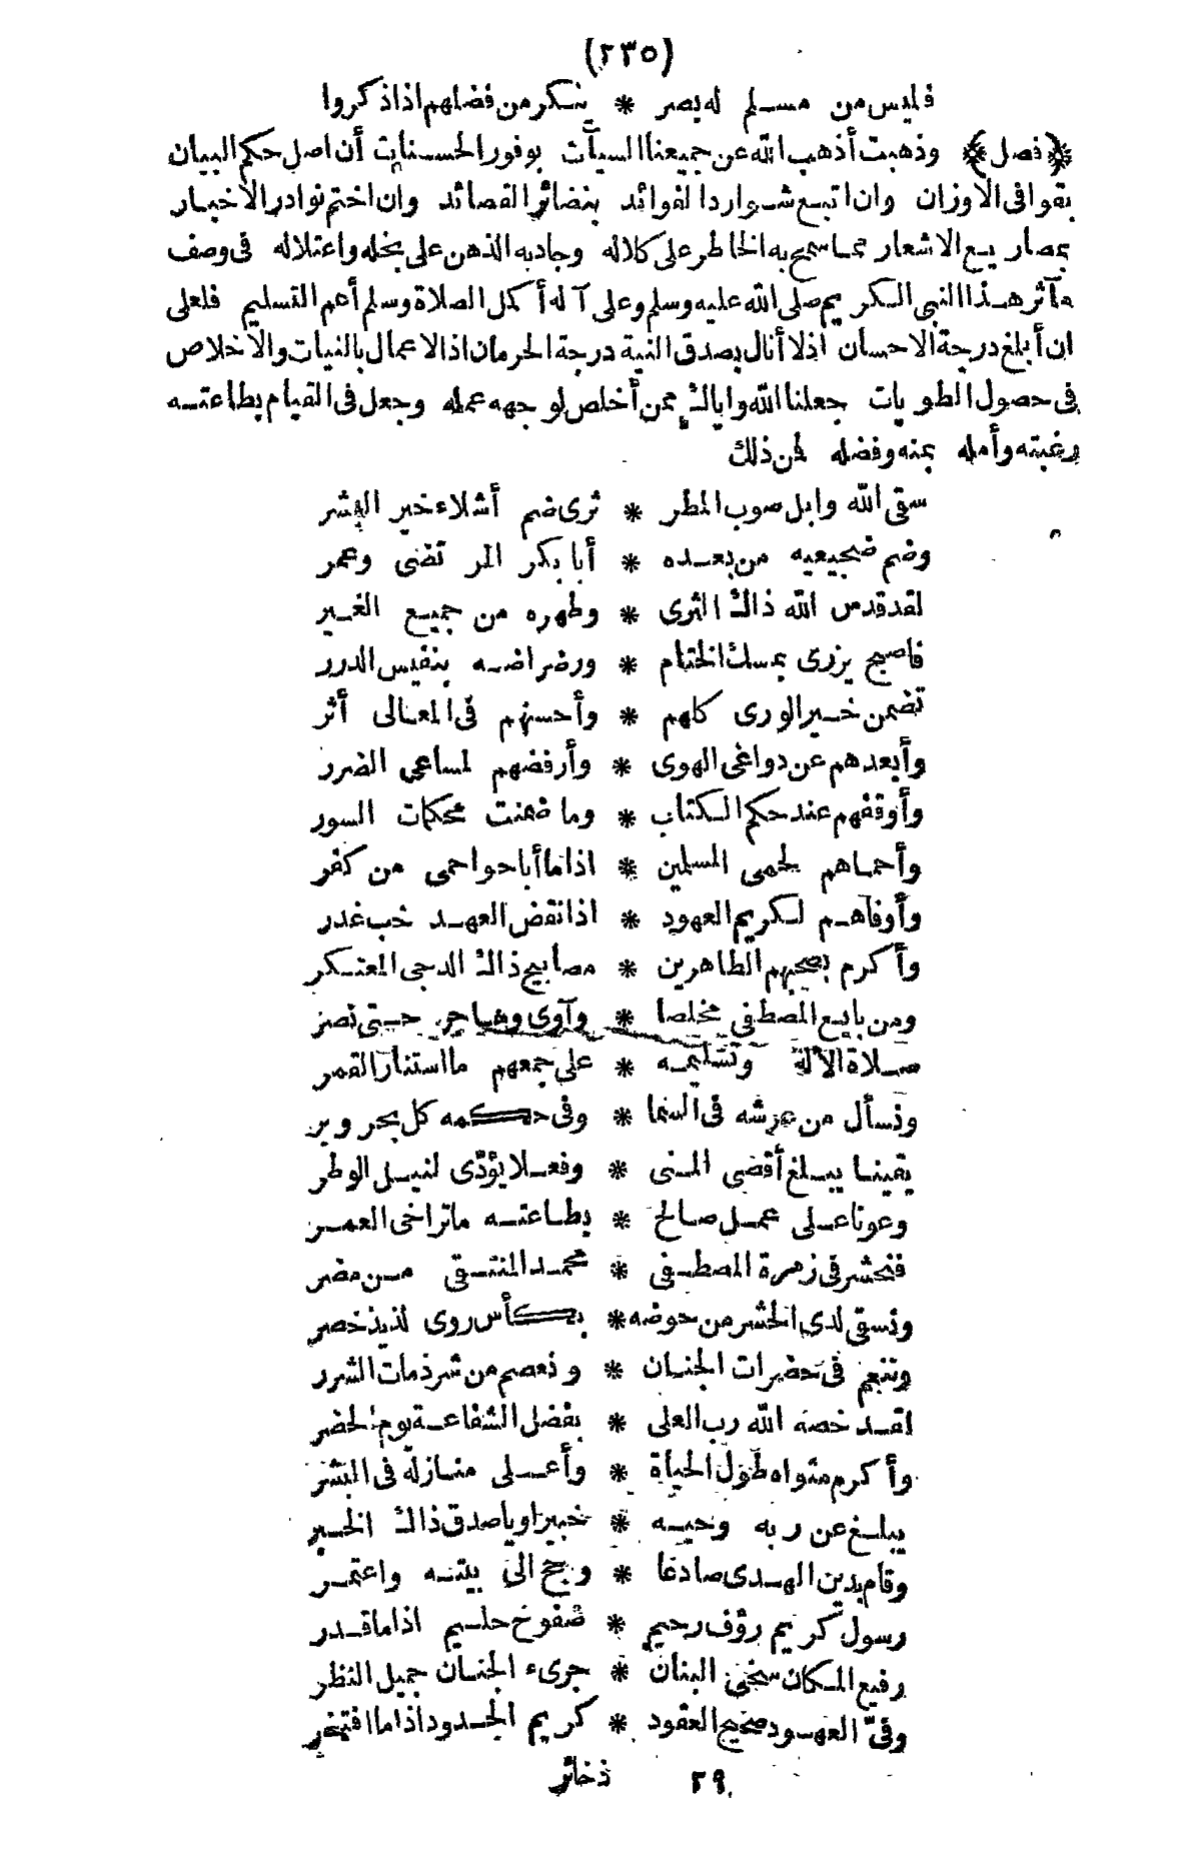 (٢٣٥)
فليس من مسلم له بصر * ينكر من فضلهم اذا ذكروا
﴿فصل﴾ وذهبت أذهب الله عن جميعنا السيآت بوفور الحسنات أن اصل حكم البيان
بقوافى الاوزان وان اتبع شوارد الفوائد بنضائر القصائد وان اختم نوادر الاخبار
بمصاريع الاشعار مما سمح به الخاطر على كلاله وجاد به الذهن على بخله واعتلاله فى وصف
مآثر هذا النبى الكريم صلى الله عليه وسلم وعلى آله أكمل الصلاة وسلم أعم التسليم فلعلى
ان أبلغ درجة الاحسان اذ لا أنال بصدق النية درجة الحرمان اذ الاعمال بالنيات والاخلاص
فى حصول الطويات جعلنا الله واياك ممن أخلص لوجهه عمله وجعل فى القيام بطاعته
رغبته وأمله بمنه وفضله فمن ذلك
سقى الله وابل صوب المطر * ثرى ضم أشلاء خير البشر
وضم ضجيعيه من بعده * أبا بكر المرتضى وعمر
لقد قدس الله ذاك الثرى * وطهره من جميع الغير
فاصبح يزرى بمسك الختام * ورضراضه بنفيس الدرر
تضمن خير الورى كلهم * وأحسنهم فى المعالى أثر
وأبعدهم عن دواغى الهوى * وأرفضهم لمساعى الضرر
وأوقفهم عند حكم الكتاب * وما ضمنت محكمات السور
وأحماهم لحمى المسلمين * اذا ما أباحوا حمى من كفر
وأوفاهم لكريم العهود * اذا نقض العهد خب غدر
وأكرم بصحبهم الطاهرين * مصابيح ذاك الدجى المعتكر
ومن بايع المصطفى مخلصا * وآوى وهاجر حتى نصر
صلاة الاله وتسليمه * على جمعهم ما استنار القمر
ونسأل من عرشه فى السما * وفى حكمه كل بحر وبر
يقينا يبلغ أقضى المنى * وفعلا يؤدّى لنيل الوطر
وعونا على عمل صالح * بطاعته ما تراخى العمر
فنحشر فى زمرة المصطفى * محمد المنتقى من مضر
ونسقى لدى الحشر من حوضه * بكأس روى لذيذ خصر
وننعم فى حضرات الجنان * ونعصم من شرذمات الشرر
لقد خصه الله رب العلى * بفضل الشفاعة يوم الحضر
وأكرم مثواه طول الحياة * وأعلى منازله فى البشر
يبلغ عن ربه وحيه * خبيرا ويا صدق ذاك الخبر
وقام بدين الهدى صادعا * وحج الى بيته واعتمر
رسول كريم رؤف رحيم * صفوح حليم اذا ما قدر
رفيع المكان سخى البنان * جرىء الجنان جميل النظر
وفىّ العهود صحيح العقود * كريم الجدود اذا ما افتخر
٢٩ ذخائر